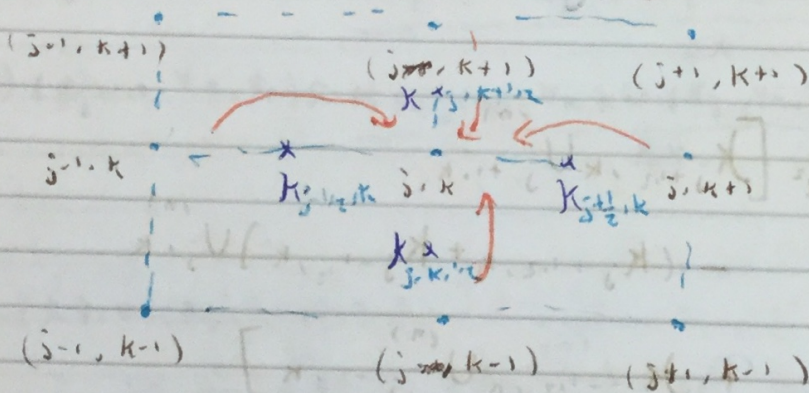 (j-1, k+1)
(j, k+1)
(j+1, k+1)
K j, k+1/2
j-1, k
K j-1/2, k
j, k
K j+1/2, k
j, k+1
K j, k-1/2
(j-1, k-1)
(j, k-1)
(j+1, k-1)